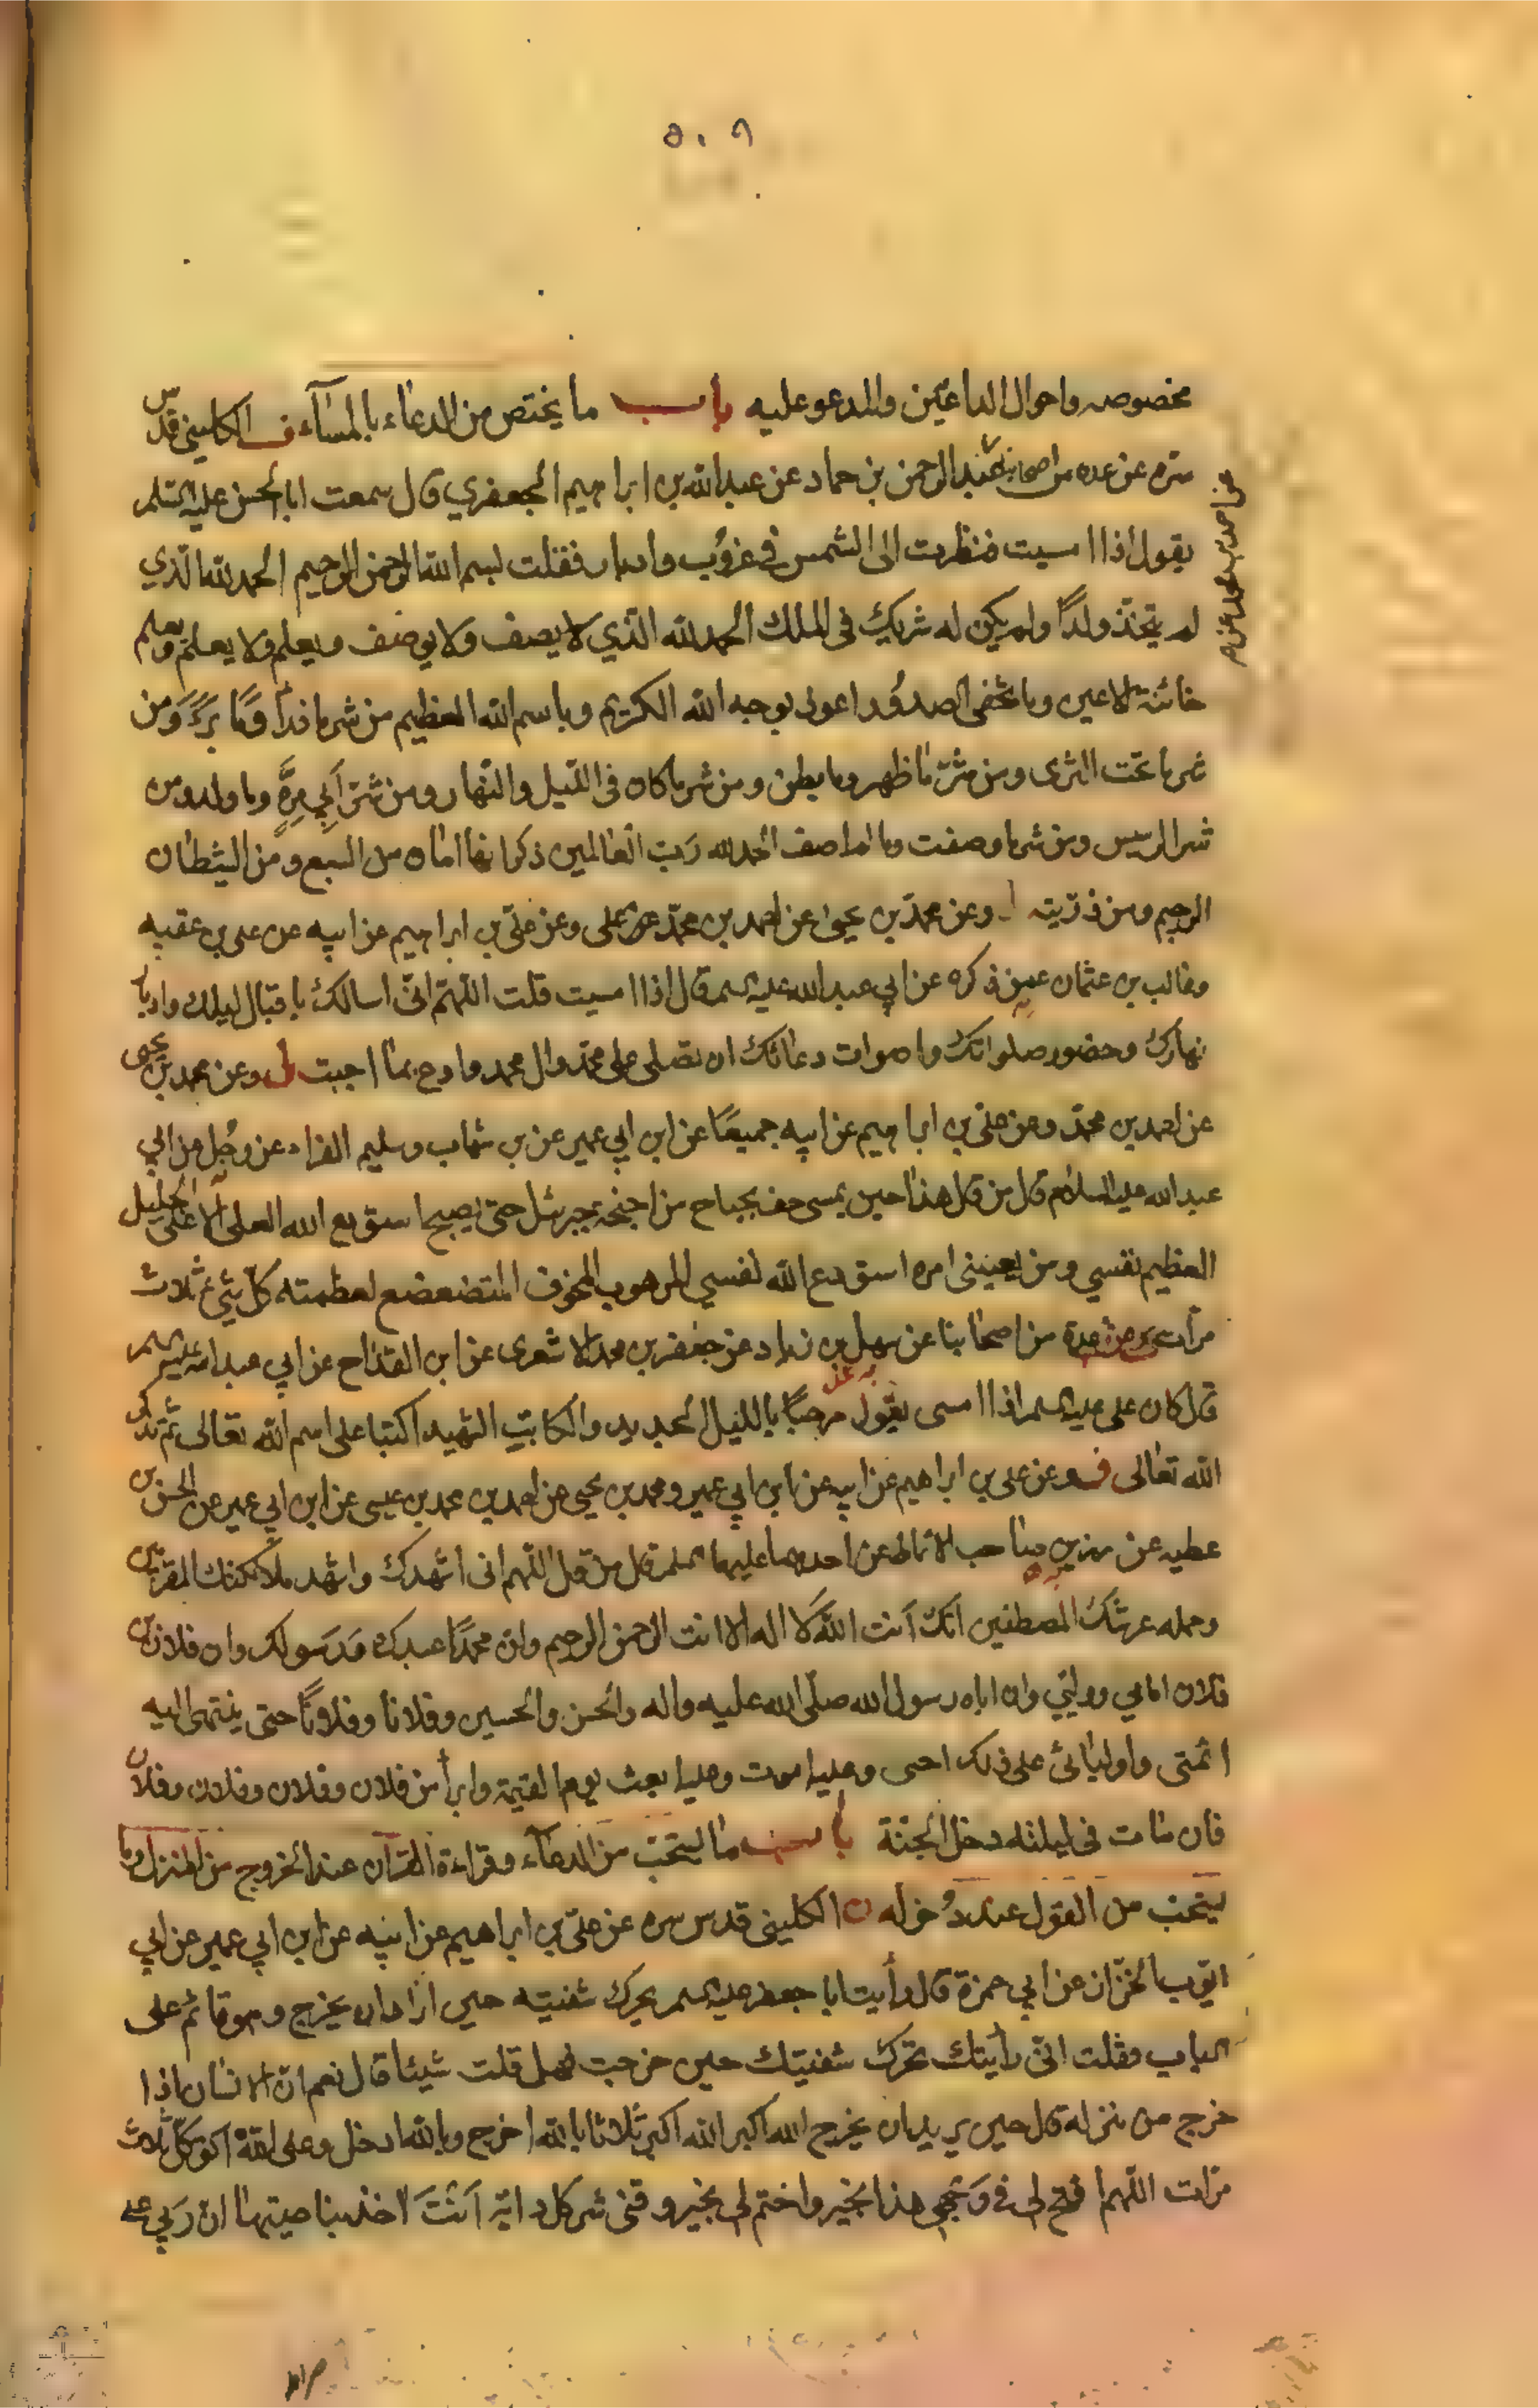 ٥٠٩
مخصوصه واحوال الداعين والمدعو عليه باب ما يختص من الدعاء بالمساء ف الكليني قدس
سره عن عده من اصحابنا عبد الرحمن بن حماد عن عبد الله بن ابراهيم الجعفري قال سمعت ابا الحسن عليه السلم
عن احمد بن محمد عن
يقول اذا امسيت فنظرت الى الشمس في غروب وادبار فقلت بسم الله الرحمن الرحيم الحمد لله الذي
لم يتخذ ولداً ولم يكن له شريك فى الملك الحمد لله الذي لا يصف ولا يوصف ويعلم ولا يعلم ويعلم
خائنة الاعين وما تخفى الصدور اعوذ بوجه الله الكريم وباسم الله العظيم من شر ما ذرأ وما برء ومن
شر ما تحت الثرى ومن شر ما ظهر وما بطن ومن شر ما كان فى الليل والنهار ومن شر ابي مرة وما ولد ومن
شر الرسيس ومن شر ما وصفت وما لم اصف الحمد لله رب العالمين ذكر انها امان من السبع ومن الشيطان
الرجيم ومن ذريته وعن محمد بن يحيى عن احمد بن محمد عن على وعن على بن ابراهيم عن ابيه عن على بن عقبه
وغالب بن عثمان عمن ذكره عن ابي عبد الله عليه السلم قال اذا امسيت قلت اللهم انى اسالك باقبال ليلك وادبار
نهارك وحضور صلواتك واصوات دعائك ان تصلى على محمد وال محمد وادع بما احببت وعن محمد بن يحيى
عن احمد بن محمد وعن على بن ابراهيم عن ابيه جميعاً عن ابن ابي عمير عن بن شهاب وسليم الفراء عن رجل عن ابي
عبد الله عليه السلام قال من قال هذا حين يمسى حف بجناح من اجنحة جبرئيل حتى يصبح استودع الله العلى الاعلى الجليل
العظيم نفسي ومن يعنينى امره استودع الله نفسي المرهوب المخوف المتضعضع لعظمته كل شيء ثلاث
مرات عن عدة من اصحابنا عن سهل بن زياد عن جعفر بن محمد الاشعرى عن ابن القداح عن ابي عبد الله عليه السلم
قال كان على عليه السلم اذا امسى يقول مرحباً بالليل الجديد والكاتب الشهيد اكتبا على اسم الله تعالى ثم يذكر
الله تعالى ف وعن على بن ابراهيم عن ابيه عن ابن ابي عمير ومحمد بن يحيى عن احمد بن محمد بن عيسى عن ابن ابي عمير عن الحسن بن
عطيه عن رزين صاحب الانماط عن احدهما عليهما السلم قال من قال اللهم انى اشهدك واشهد ملائكتك المقربين
وحمله عرشك المصطفين انك انت الله لا اله الا انت الرحمن الرحيم وان محمداً عبدك ورسولك وان فلان بن
فلان امامي ووليي وان اباه رسول الله صلى الله عليه واله والحسن والحسين وفلانا وفلاناً حتى ينتهى اليه
ائمتى واوليائى على ذلك احيى وعليه اموت وعليه ابعث يوم القيمة وابرأ من فلان وفلان وفلان وفلان
فان مات فى ليلته دخل الجنة باب ما يستحب من الدعاء وقراءة القرآن عند الخروج من المنزل وما
يستحب من القول عند دخوله الكليني قدس سره عن على بن ابراهيم عن ابيه عن ابن ابي عمير عن ابي
ايوب الخزاز عن ابي حمزة قال رأيت ابا جعفر عليه السلم يحرك شفتيه حين اراد ان يخرج وهو قائم على
الباب فقلت انى رأيتك تحرك شفتيك حين خرجت فهل قلت شيئا قال نعم ان الانسان اذا
خرج من منزله قال حين يريد ان يخرج الله اكبر الله اكبر ثلاثا بالله اخرج وبالله ادخل وعلى الله اتوكل ثلاث
مرات اللهم افتح لي في وجهي هذا بخير واختم لي بخير وقنى شر كل دابة انت اخذ بناصيتها ان ربي على